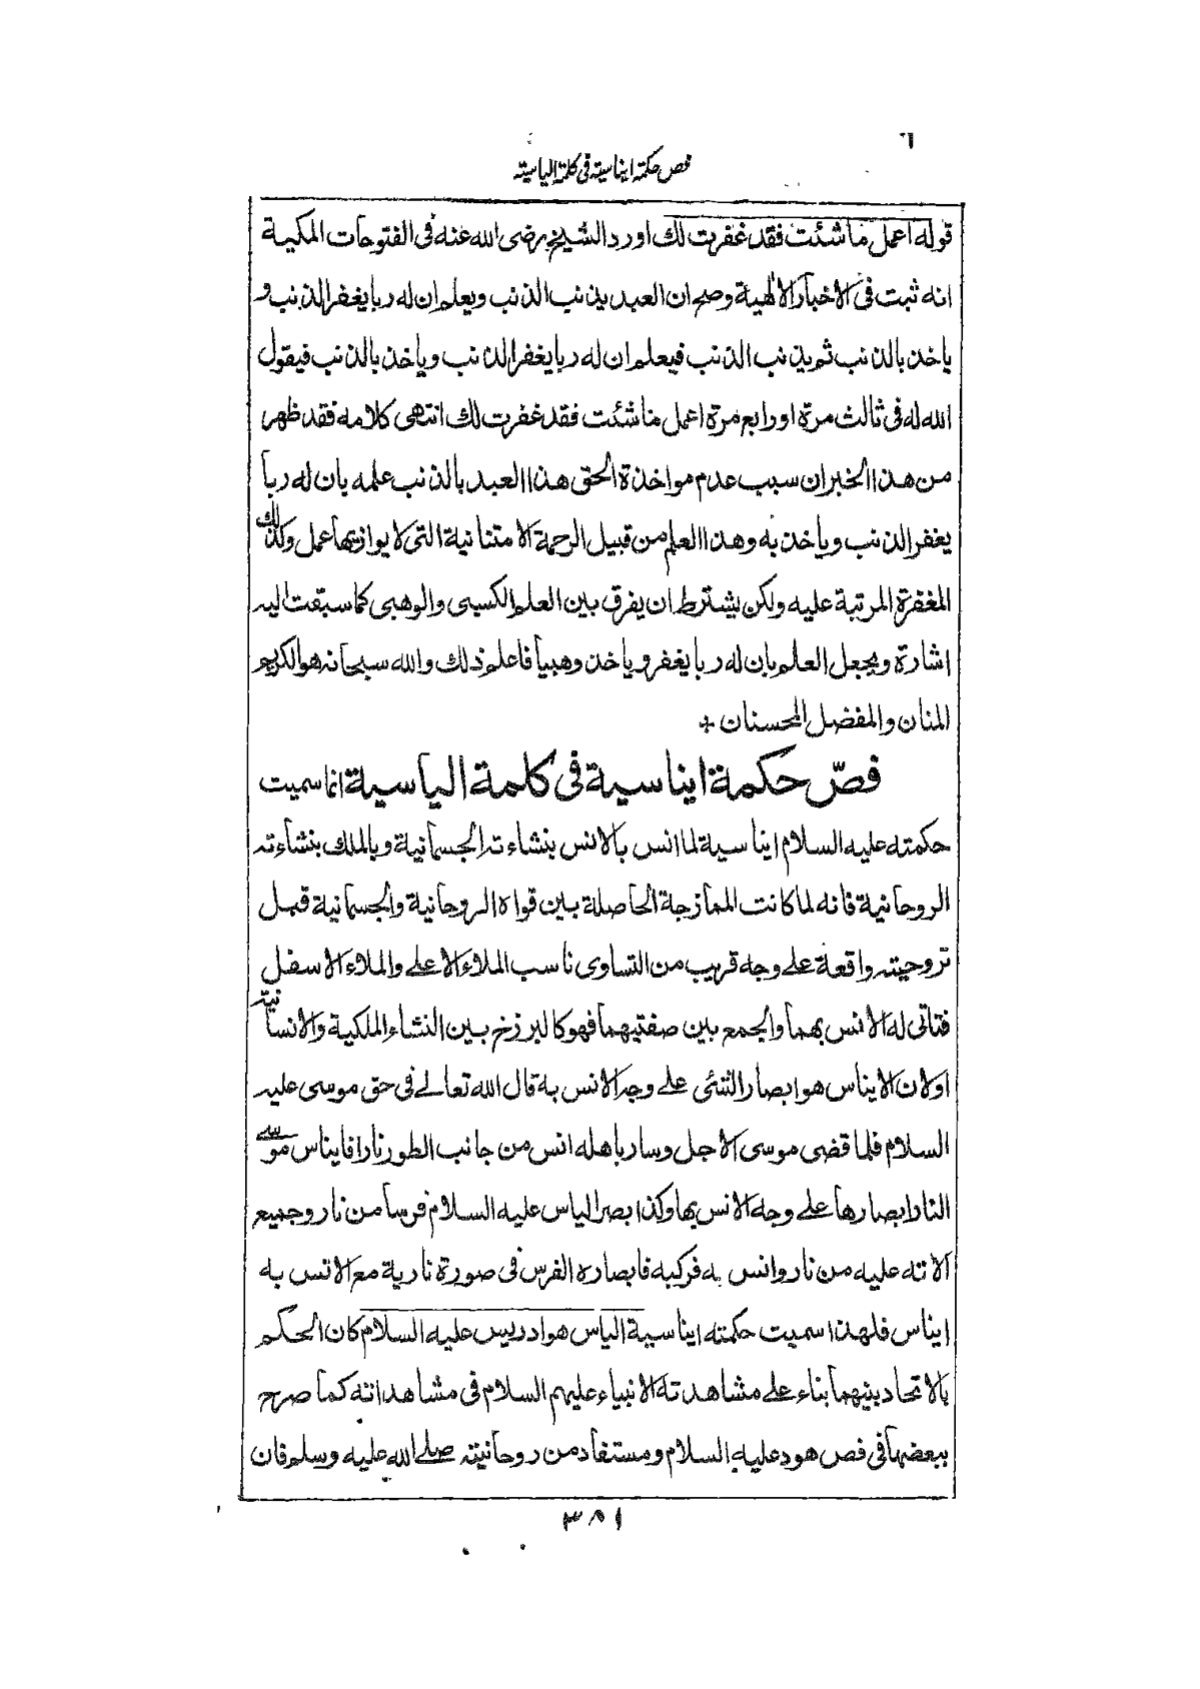 ٦
فص حكمة ايناسية فى كلمة الياسية
قوله اعمل ما شئت فقد غفرت لك اورد الشيخ رضى الله عنه فى الفتوحات المكية
انه ثبت فى الاخبار الالهية وصح ان العبد يذنب الذنب ويعلم ان له ربا يغفر الذنب و
ياخذ بالذنب ثم يذنب الذنب فيعلم ان له ربا يغفر الذنب وياخذ بالذنب فيقول
الله له فى ثالث مرة او رابع مرة اعمل ما شئت فقد غفرت لك انتهى كلامه فقد ظهر
من هذا الخبر ان سبب عدم مواخذة الحق هذا العبد بالذنب علمه بان له ربا
يغفر الذنب وياخذ به وهذا العلم من قبيل الرحمة الامتنانية التى لا يوازيها عمل وكذلك
المغفرة المرتبة عليه ولكن يشترط ان يفرق بين العلم الكسبى والوهبى كما سبقت اليه
اشارة ويجعل العلم بان له ربا يغفر وياخذ وهبيا فاعلم ذلك والله سبحانه هو الكريم
المنان والمفضل المحسنان ٭
فصّ حكمة ايناسية فى كلمة الياسية انما سميت
حكمته عليه السلام ايناسية لما انس بالانس بنشاءته الجسمانية وبالملك بنشاءته
الروحانية فانه لما كانت الممازجة الحاصلة بين قواه الروحانية والجسمانية قبل
تروحيته واقعة على وجه قريب من التساوى ناسب الملاء الاعلى والملاء الاسفل
فتاتى له الانس بهما والجمع بين صفتيهما فهو كالبرزخ بين النشاء الملكية والانسانية
اولان الايناس هو ابصار الشئ على وجه الانس به قال الله تعالى فى حق موسى عليه
السلام فلما قضى موسى الاجل وسار باهله انس من جانب الطور نارا فايناس موسى
النار ابصارها على وجه الانس بها وكذا بصر الياس عليه السلام فرسا من نار وجميع
الاته عليه من نار وانس به فركبه فابصاره الفرس فى صورة نارية مع الانس به
ايناس فلهذا سميت حكمته ايناسية الياس هو ادريس عليه السلام كان الحكم
بالاتحاد بينهما بناء على مشاهدته الانبياء عليهم السلام فى مشاهداته كما صرح
ببعضها فى فص هود عليه السلام ومستفاد من روحانيته صلى الله عليه وسلم فان
٣٨١